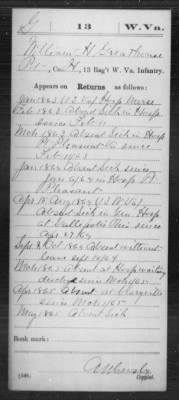 G | 13 | W. Va.
William H. Greathouse
Pvt., Co. H, 13 Reg't W. Va. Infantry.
Appears on Returns as follows:
Jany 1863 Hosp Nurse
Feb 1863 Absent Sick in Hosp
since Feb
Mch 1863 Absent Sick in Hosp
Pt Pleasant Va since
Feb 1863
Jan 1864 Absent Sick since
Jan 6/64 in Hosp Pt
Pleasant
Apr to Aug 1864
Absent Sick in Gen Hosp
at Gallipolis Ohio since
Apr 27/64
Sept & Oct 1864 Absent without
leave Sept 19/64
Mch 1865 Absent at Hosp waiting
since Mch 1865
Apr 1865 Absent at
since Mch 1865
May 1865 Absent Sick
Book mark:
Copyist.